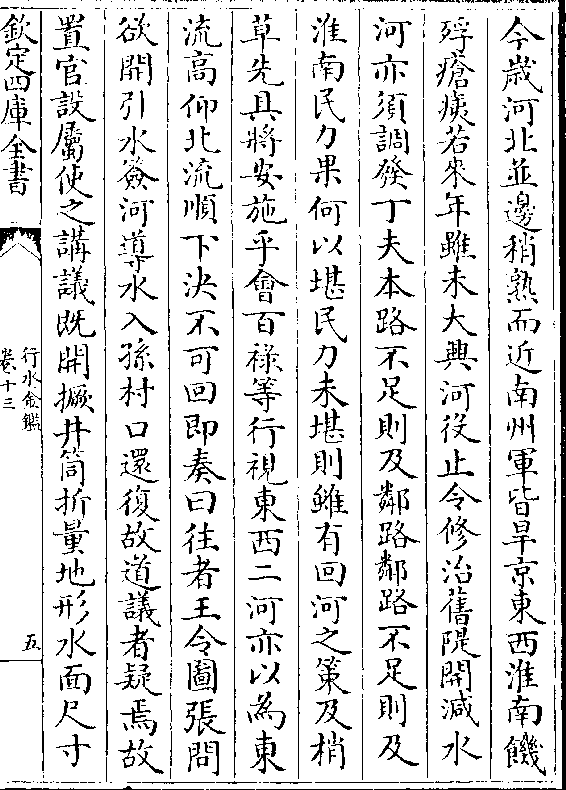 今歲河北並邊稍熟而近南州軍皆旱京東西淮南饑
殍瘡痍若來年雖未大興河役止令修治舊隄開減水
河亦須調發丁夫本路不足則及鄰路鄰路不足則及
淮南民力果何以堪民力未堪則雖有回河之策及梢
草先具將安施乎會百祿等行視東西二河亦以為東
流高仰北流順下決不可回即奏曰往者王令圖張問
欲開引水簽河導水入孫村口還復故道議者疑焉故
置官設屬使之講議既開撅井筒折量地形水面尺寸
欽定四庫全書
行水金鑑
卷十三
五